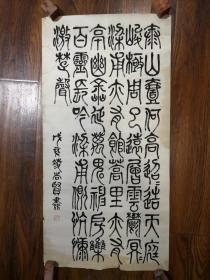 泰山壹何高迢迢造天庭
峻極周以遠層雲鬱冥冥
梁甫亦有館蒿里亦有
亭幽岑延萬鬼神房集
百靈長吟梁甫側慷慨
激楚聲
書